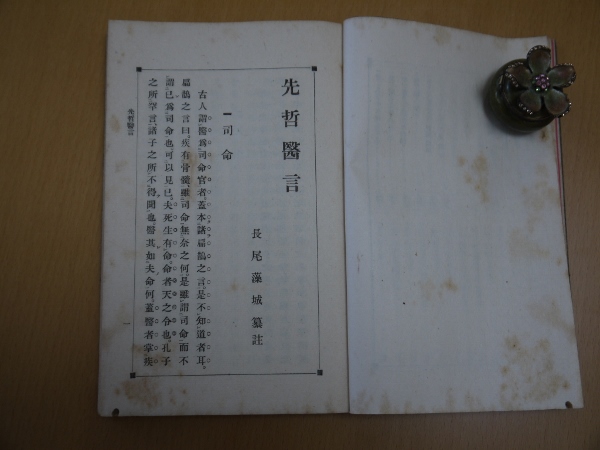 先哲醫言
長尾藻城纂註
一司命
古人謂醫爲司命官者蓋本諸扁鵲之言是不知道者耳。
扁鵲之言曰疾有骨髓雖司命無奈之何是雖謂司命而不
謂已爲司命也可以見已夫死生有命命者天之令也孔子
之所罕言諸子之所不得聞也醫其如夫命何蓋醫者掌疾
先哲醫言
一